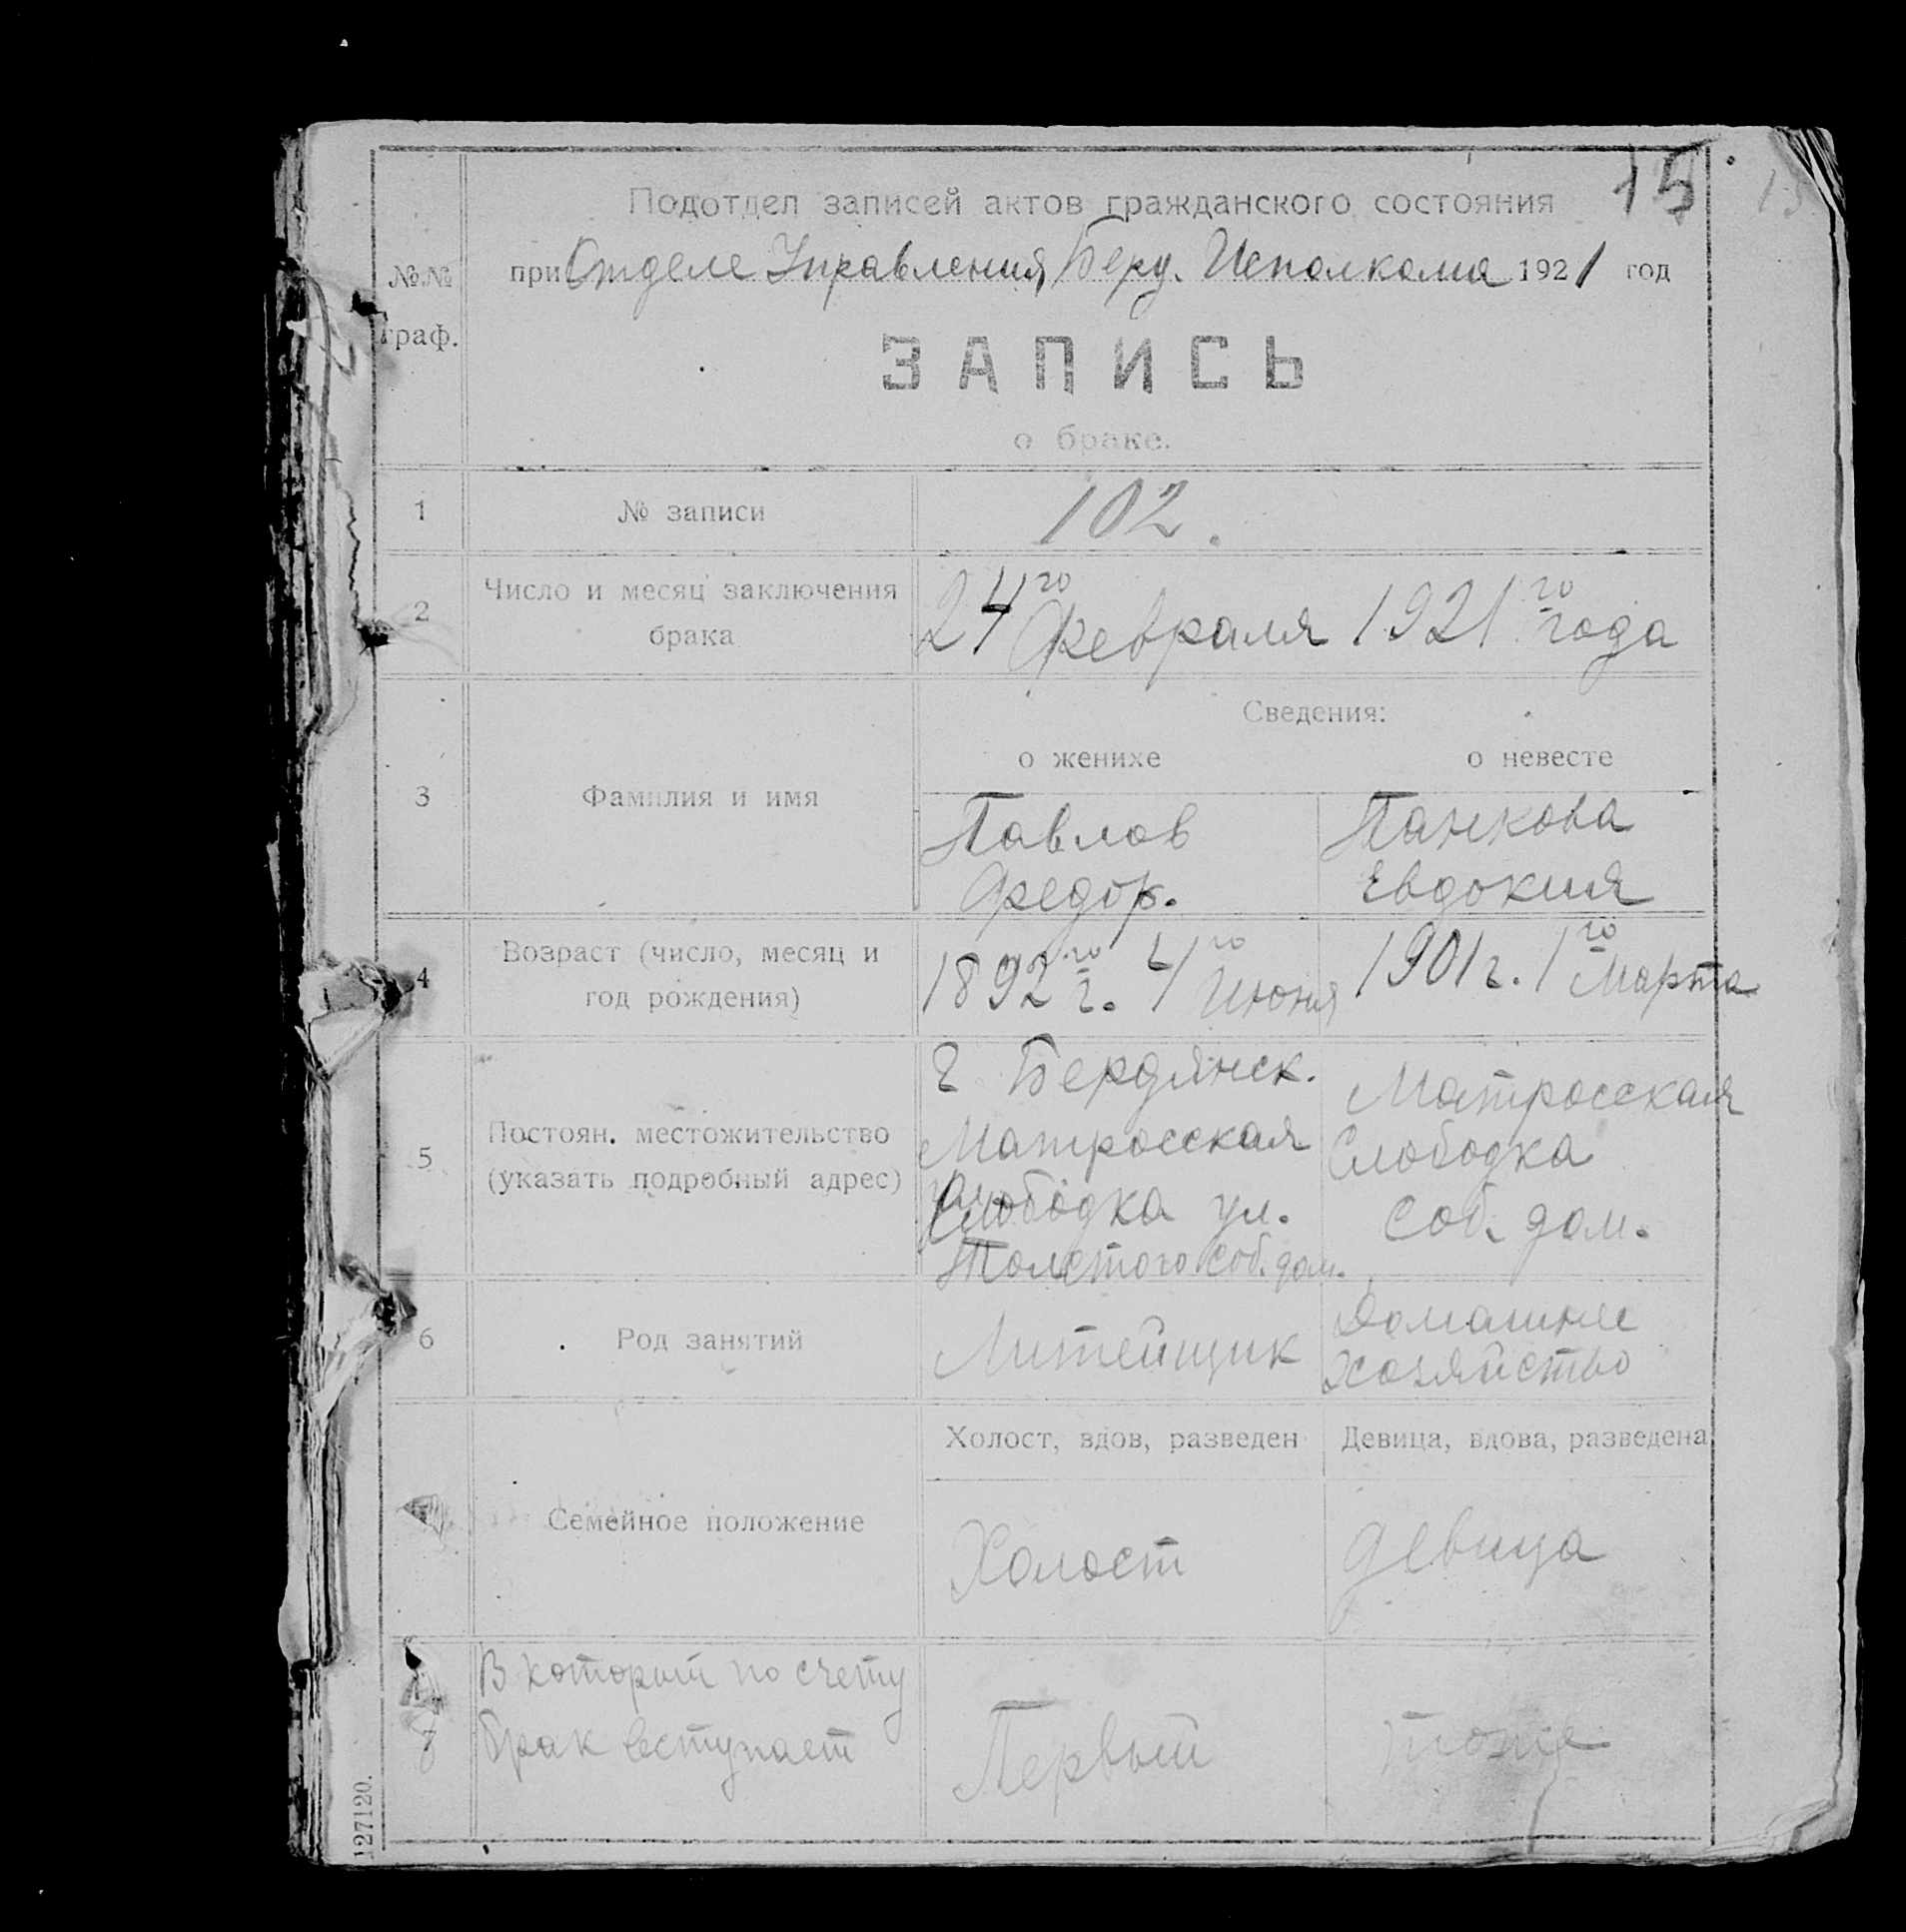 15
15
Подотдел записей актов гражданского состояния
№№
граф.
при Отделе Управления Берд. Исполкома 1921 год
ЗАПИСЬ
о браке.
1
№ записи
102.
2
Число и месяц заключения
брака
24го Февраля 1921го года
Сведения:
о женихе
о невесте
3
Фамилия и имя
Павлов
Федор.
Панкова
Евдокия
4
Возраст (число, месяц и
год рождения)
1892го г. 4го Июня
1901 г. 1го Марта
5
Постоян. местожительство
(указать подробный адрес)
г Бердянск.
Матросская
Слободка ул.
Толстого соб. дом.
Матросская
Слободка
Соб. дом.
6
Род занятий
Литейщик
Домашнее
хозяйство
Холост, вдов, разведен
Девица, вдова, разведена
Семейное положение
Холост
девица
8
В который по счету
брак вступает
Первый
тоже
127120.